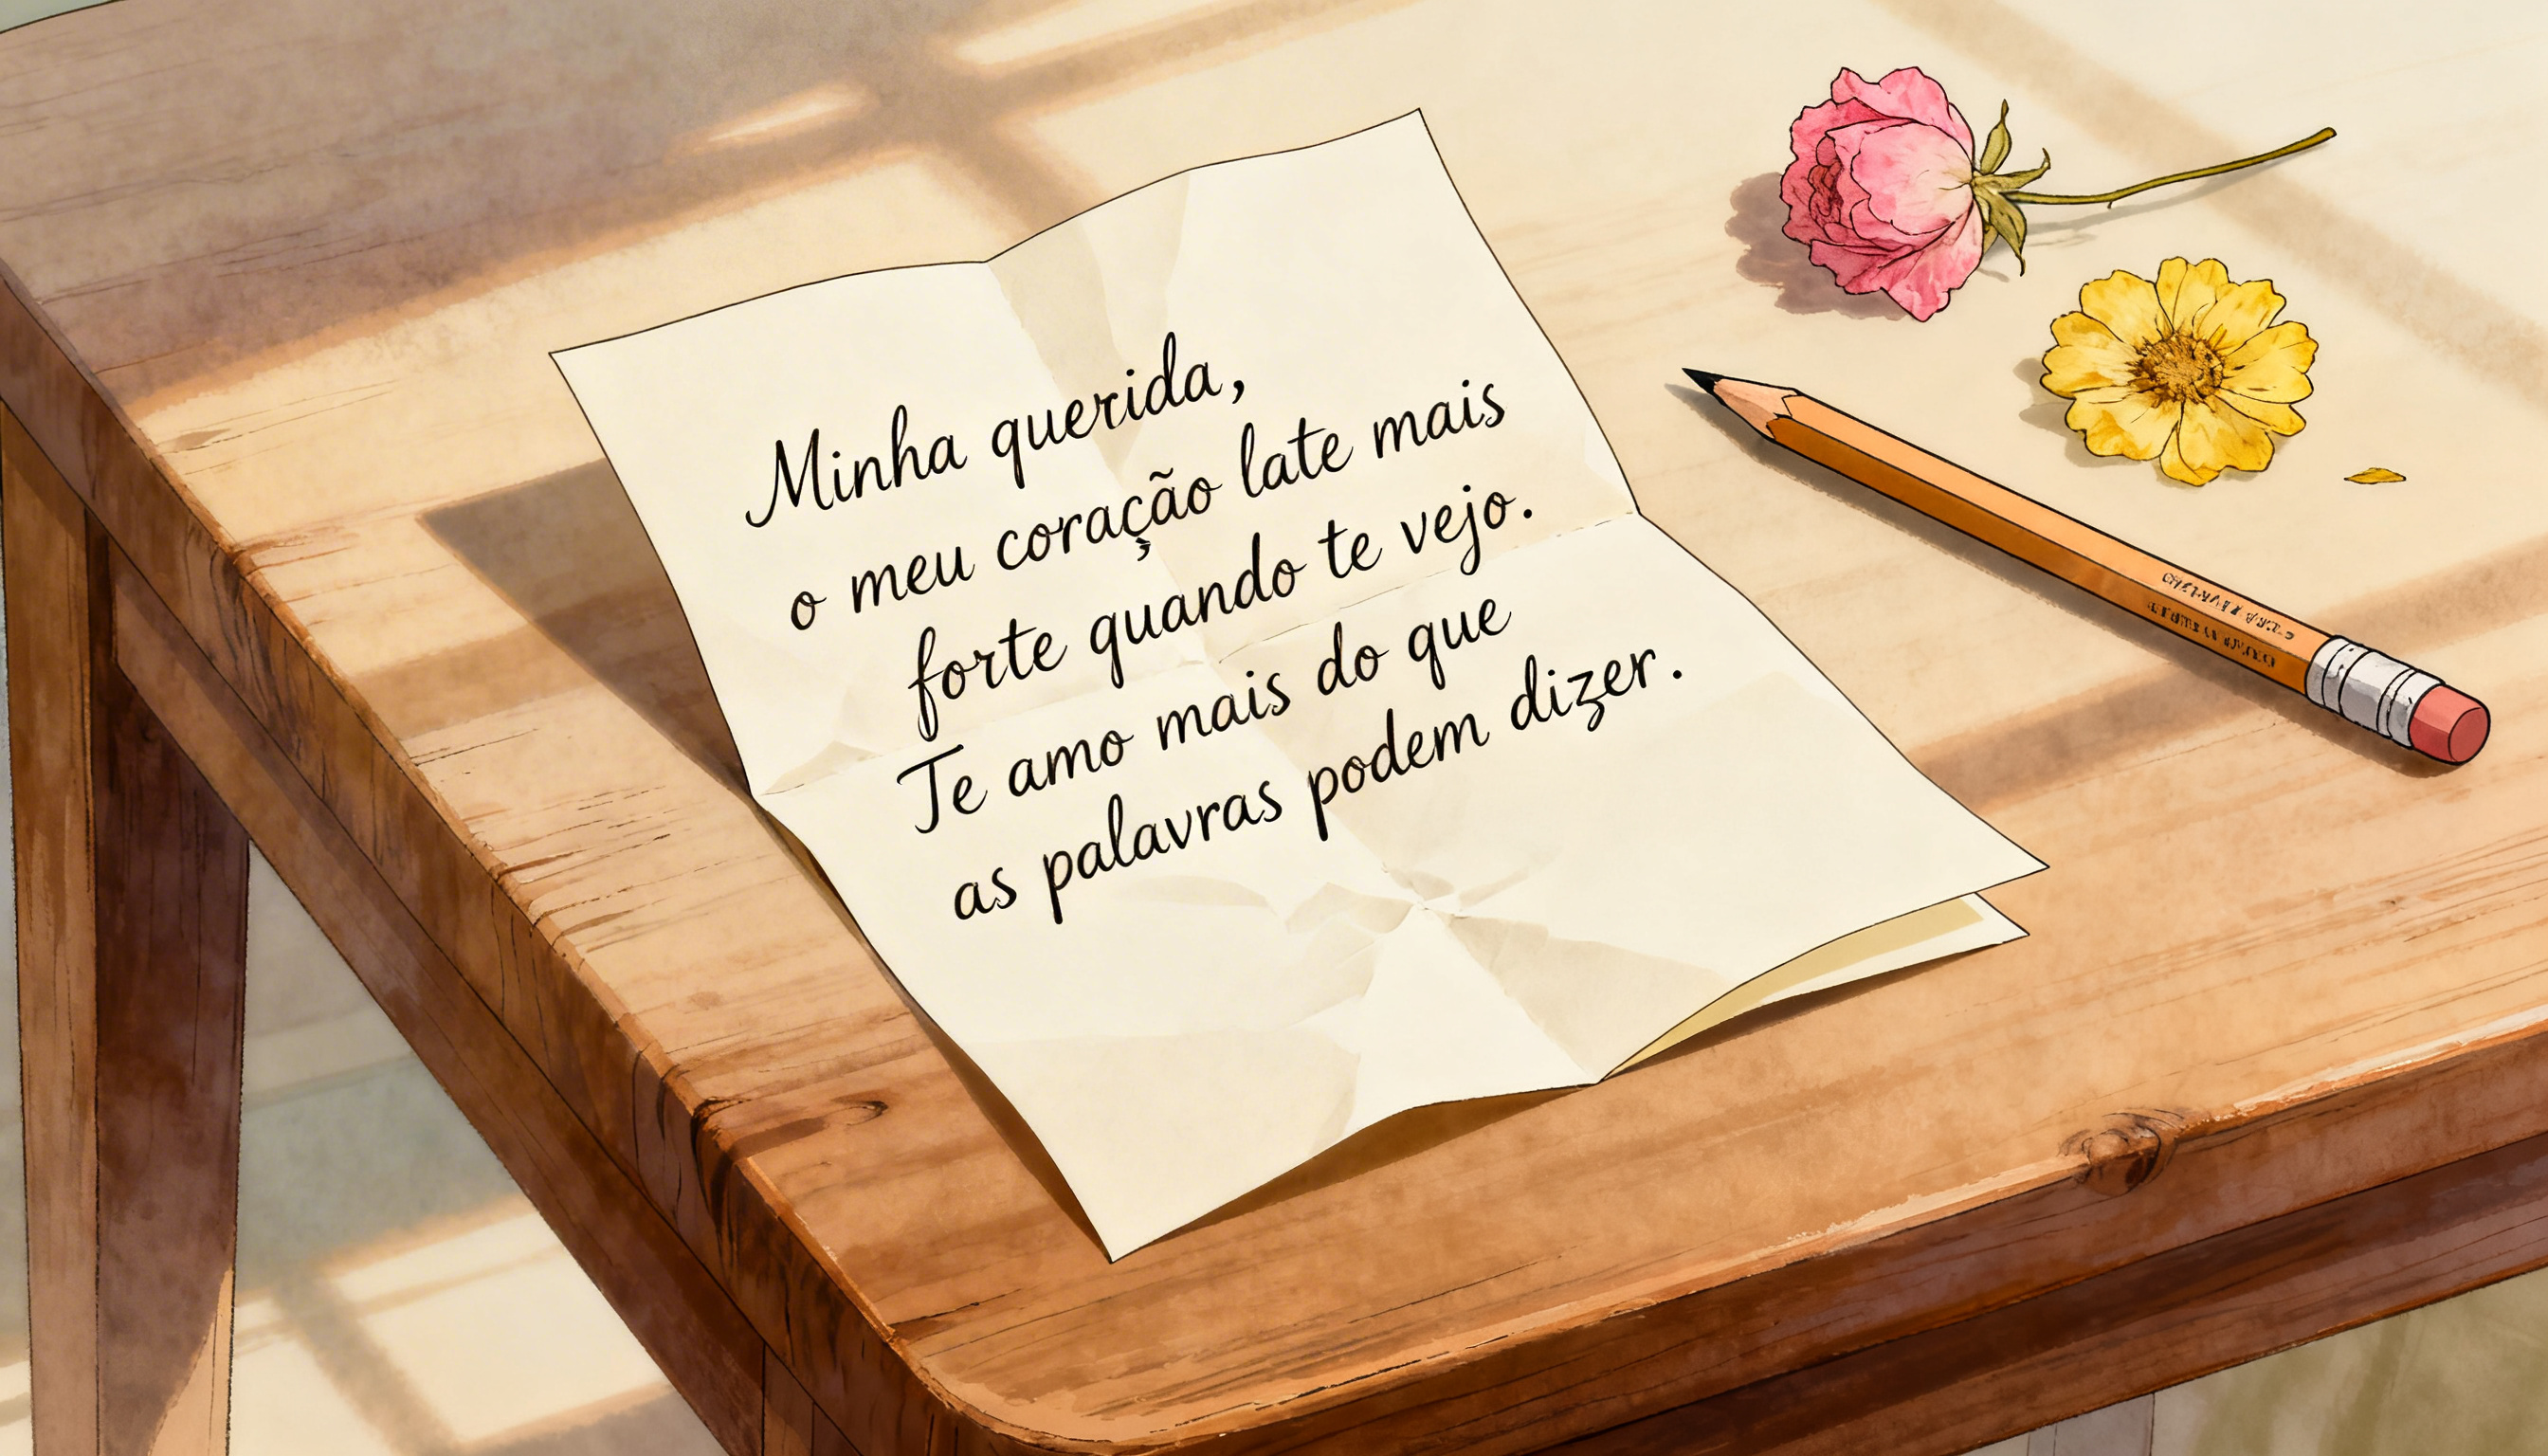 Minha querida,
o meu coração late mais
forte quando te vejo.
Te amo mais do que
as palavras podem dizer.